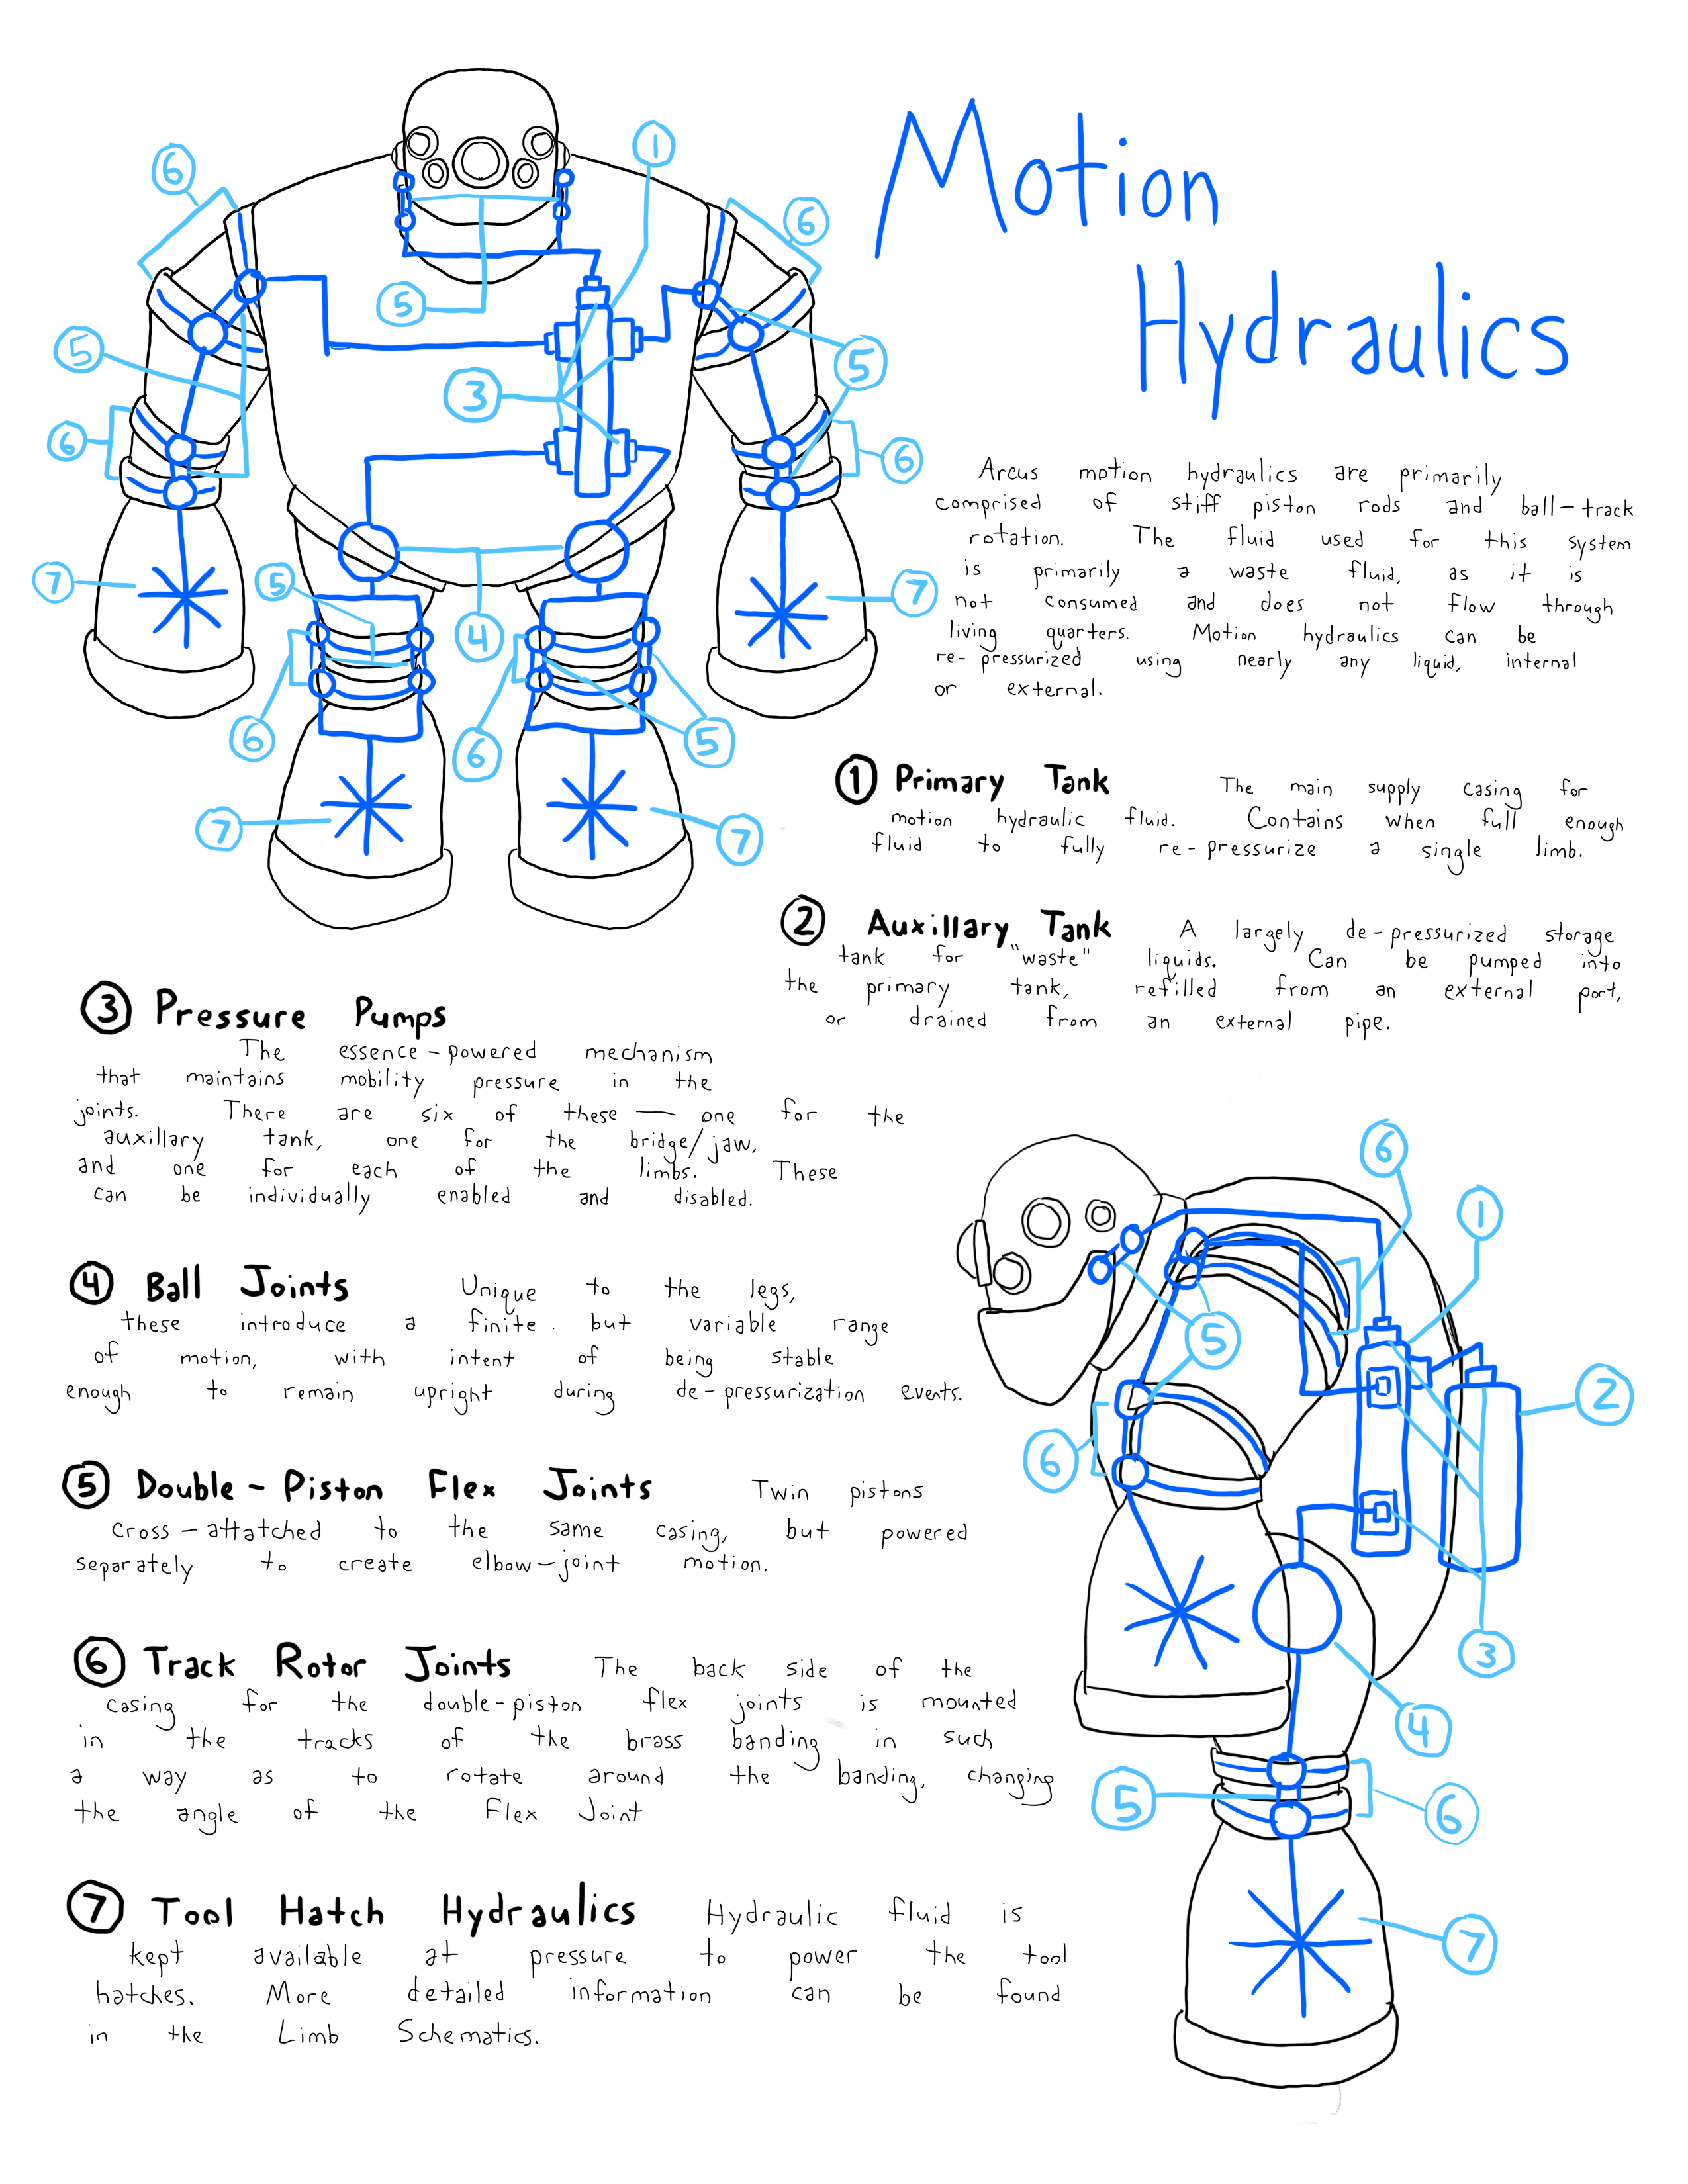 Motion
Hydraulics
Arcus motion hydraulics are primarily
comprised of stiff piston rods and ball-track
rotation. The fluid used for this system
is primarily a waste fluid, as it is
not consumed and does not flow through
living quarters. Motion hydraulics can be
re-pressurized using nearly any liquid, internal
or external.
1 Primary Tank The main supply casing for
motion hydraulic fluid. Contains when full enough
fluid to fully re-pressurize a single limb.
2 Auxillary Tank A largely de-pressurized storage
tank for "waste" liquids. Can be pumped into
the primary tank, refilled from an external port,
or drained from an external pipe.
3 Pressure Pumps
The essence-powered mechanism
that maintains mobility pressure in the
joints. There are six of these — one for the
auxillary tank, one for the bridge/jaw,
and one for each of the limbs. These
can be individually enabled and disabled.
4 Ball Joints Unique to the legs,
these introduce a finite but variable range
of motion, with intent of being stable
enough to remain upright during de-pressurization events.
5 Double-Piston Flex Joints Twin pistons
cross-attatched to the same casing, but powered
separately to create elbow-joint motion.
6 Track Rotor Joints The back side of the
casing for the double-piston flex joints is mounted
in the tracks of the brass banding in such
a way as to rotate around the banding, changing
the angle of the Flex Joint
7 Tool Hatch Hydraulics Hydraulic fluid is
kept available at pressure to power the tool
hatches. More detailed information can be found
in the Limb Schematics.
6
1
6
5
5
5
3
6
6
7
5
7
4
6
6
5
7
7
6
1
5
2
6
3
4
5
6
7